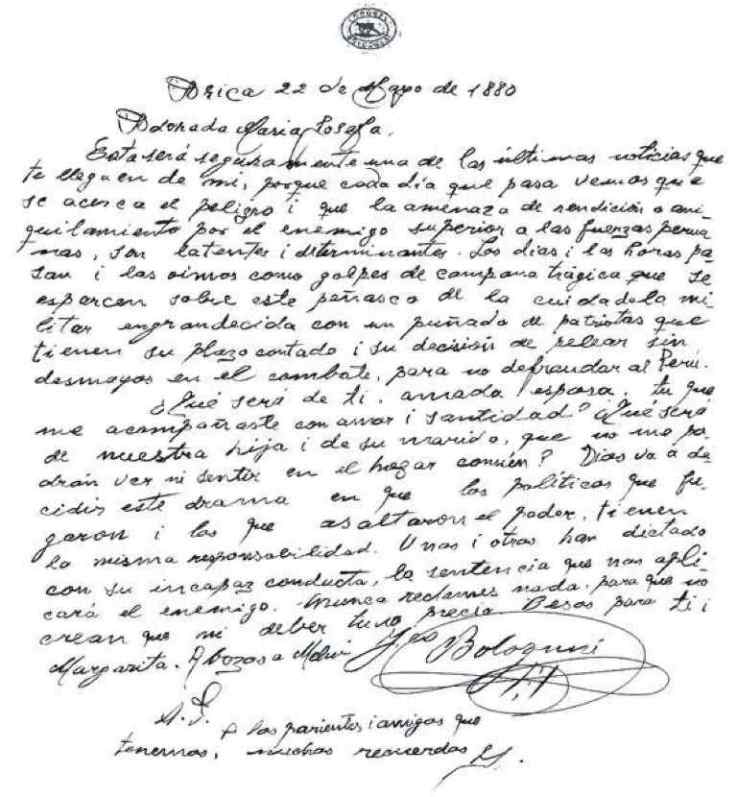 Arica 22 de Mayo de 1880
Adorada María Josefa.
Esta será seguramente una de las últimas noticias que
te lleguen de mí, porque cada día que pasa vemos que
se acerca el peligro i que la amenaza de rendición o ani-
quilamiento por el enemigo superior a las fuerzas perua
nas, son latentes i determinantes. Los días i las horas pa
san i las oimos como golpes de campana trágica que se
esparcen sobre este peñasco de la cuidadela mi
litar engrandecida con un puñado de patriotas que
tienen su plazo contado i su decisión de pelear sin
desmayos en el combate, para no defraudar al Perú.
¿Qué será de ti, amada esposa, tu que
me acompañaste con amor i santidad? ¿Qué será
de nuestra hija i de su marido, que no me po-
drán ver ni sentir en el hogar común? Dios va a de
cidir este drama en que los políticos que fu-
garon i los que asaltaron el poder, tienen
la misma responsabilidad. Unos i otros han dictado
con su incapaz conducta, la sentencia que nos apli
cará el enemigo. Nunca reclames nada, para que no
crean que mi deber tuvo precio Besos para ti i
Margarita. Abrazos a
Bolognesi
A los parientes i amigos que
tenemos, muchos recuerdos